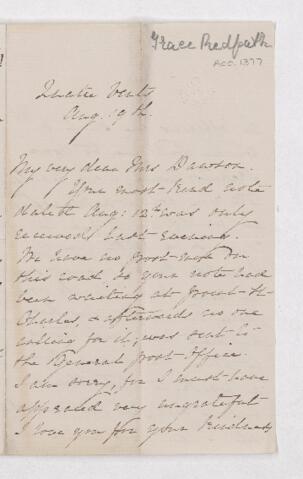 Grace Redpath
Acc. 1377
Quatre Vents
Aug: 19th.
My very dear Mrs Dawson.
Your most kind note
dated Aug: 12th was only
received last evening.
We have no post-man on
this road so your note had
been waiting at Point-St-
Charles, & afterwards no one
calling for it, was sent to
the General post-office.
I am sorry, for I must have
appeared very ungrateful
I love you for your kindness